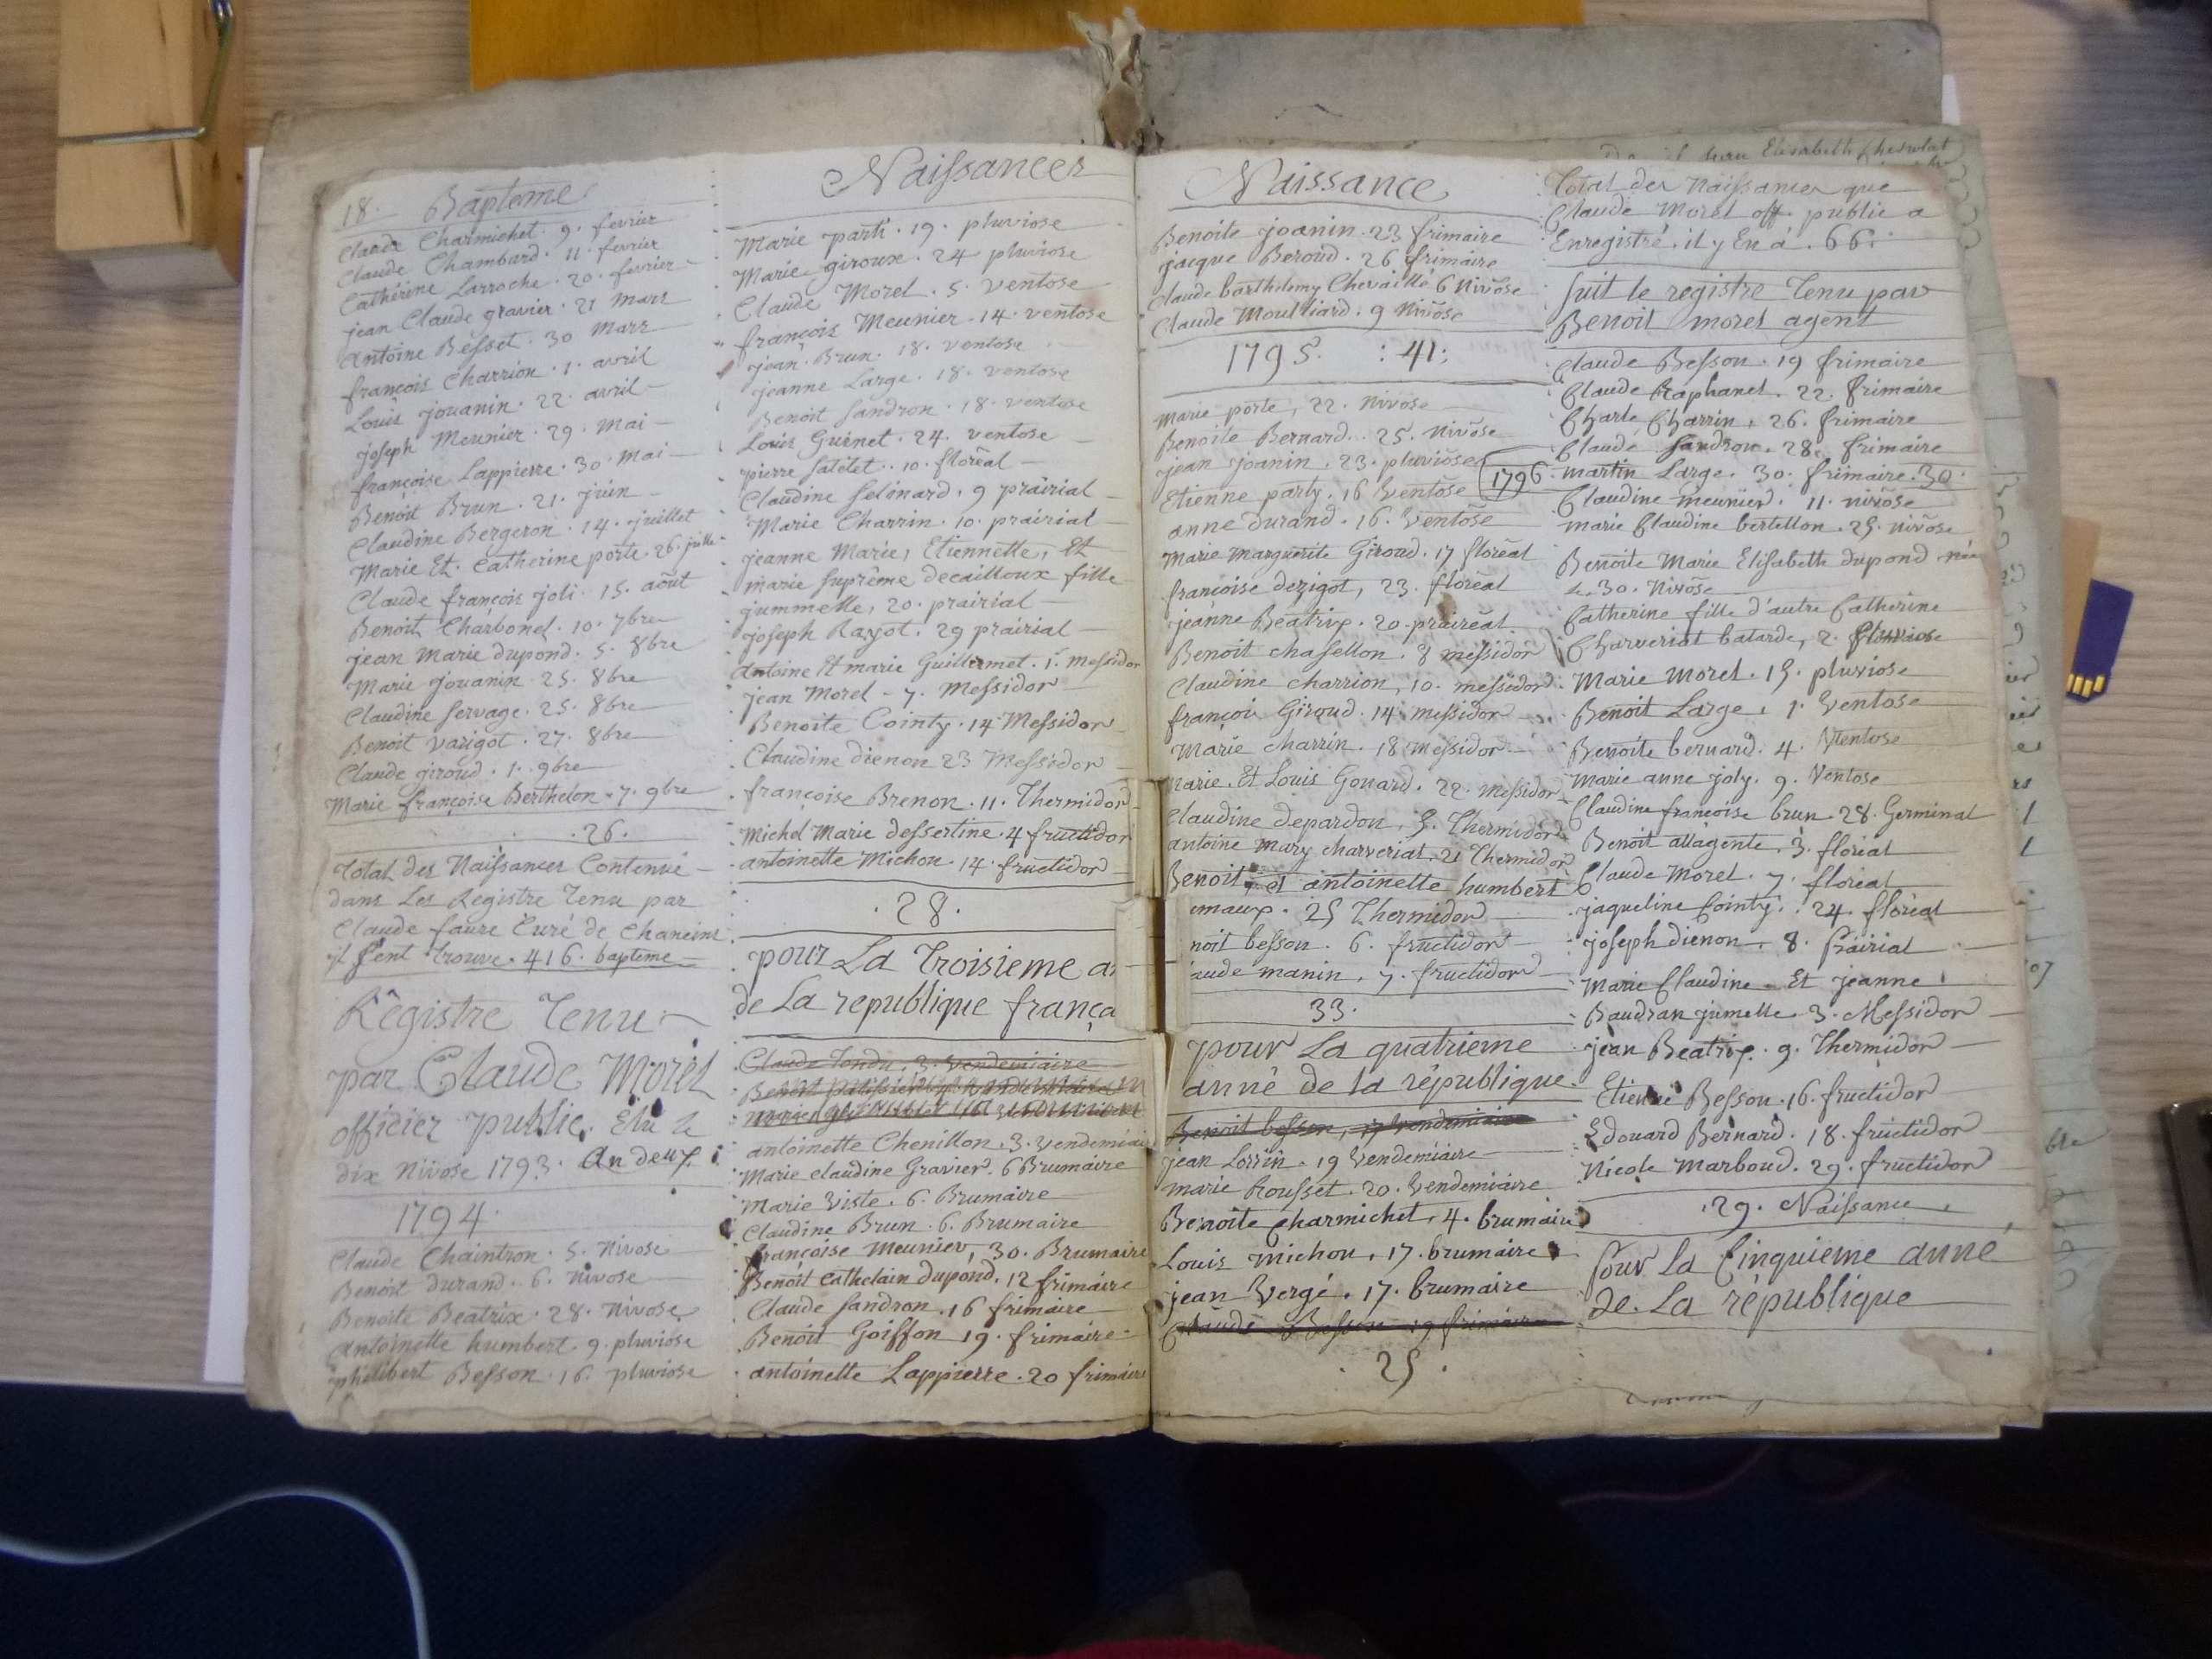 18. Baptemes
Claude Charmichet. 9. fevrier
Claude Chambard. 11. fevrier
Catherine Larroche. 20. fevrier
jean Claude gravier. 21 Mars
antoine Besset. 30 Mars
françois Charrion. 1. avril
Louis jouanin. 22. avril
joseph Meunier. 29. Mai
françoise Lappierre. 30. Mai
Benoit Brun. 21. juin
Claudine Bergeron. 14. juillet
Marie Et. Catherine porte. 26. juille
Claude françois joli. 15. août
Benoit Charbonel. 10. 7bre
jean Marie dupond. 5. 8bre
Marie jouanin. 25. 8bre
Claudine servage. 25. 8bre
Benoit varigot. 27. 8bre
Claude giroud. 1. 9bre
Marie françoise Berthelon. 7. 9bre
.26.
Total des Naissances Contenüe
dans Les Registre Tenu par
Claude faure Curé de Chaneins
il s'ent trouve. 416. bapteme
Régistre Tenu
par Claude Morel
officier public. Elu le
dix Nivose 1793. An deux.
1794.
Claude Chaintron. 5. Nivose
Benoit durand. 6. nivose
Benoite Beatrix. 28. Nivose
antoinette humbert. 9. pluviose
philibert Besson. 16. pluviose
Naissances
Marie parti. 19. pluviose
Marie giroux. 24 pluviose
Claude Morel. 5. ventose
françois Meunier. 14. ventose
jean Brun. 18. ventose
jeanne Large. 18. ventose
Benoit sandron. 18. ventose
Louis Guinet. 24. ventose
pierre satilet. 10. floréal
Claudine selénard. 9 prairial
Marie Charrin. 10. prairial
jeanne Marie, Etiennette, Et
marie suprême decailloux fille
jummelle, 20. prairial
joseph Rayot. 29 prairial
antoine Et marie Guillermet. 1. Messidor
jean Morel. 7. Messidor
Benoite Cointy. 14 Messidor
Claudine dienon 23 Messidor
françoise Brenon. 11. Thermidor
Michel Marie dessertine. 4 fructidor
antoinette Michon. 14. fructidor
.28.
pour La Troisieme a
de La republique frança
Claude Vendemiaire
Benoit
antoinette Chenillon. 3. vendemiai
Marie claudine Gravier. 6 Brumaire
Marie Viste. 6. Brumaire
Claudine Brun. 6. Brumaire
françoise Meunier, 30. Brumaire
Benoit Cathelain dupond, 12 frimaire
Claude sandron. 16 frimaire
Benoit Goiffon 19. frimaire
antoinette Lappierre. 20 frimaire
Naissance
Benoite joanin. 23 frimaire
jacque Beroud. 26 frimaire
Claude barthelemy Chevaillé 6 Nivôse
Claude Moulliard. 9 Nivôse
1795. : 41 :
Marie porte, 22. Nivôse
Benoite Bernard. 25. Nivôse
jean joanin. 23. pluviôse
Etienne party. 16 Ventôse
anne durand. 16. Ventôse
Marie Marguerite Giroud. 17 floréal
françoise dezigot, 23. floréal
jeanne Beatrix. 20. prairéal
Benoit chasellon. 8 messidor
Claudine charrion, 10. messidor
françois Giroud. 14. messidor
Marie charrin. 18. messidor
Marie. Et Louis Gonard. 22. messidor
Claudine depardon, 5. Thermidor
antoine mary charveriat, 21 Thermidor
Benoit et antoinette humbert
imaux. 25 Thermidor
noit besson. 6. fructidor
aude manin. 7. fructidor
33.
pour La quatrieme
anné de la république
Benoit besson, 17 vendemiaire
jean Lorrin. 19 Vendemiaire
marie Rousset. 20. Vendemiaire
Benoite Charmichet, 4. brumaire
Louis michon, 17. brumaire
jean Vergé. 17. brumaire
Claude Besson 19 frimaire
.25.
Total des Naissances que
Claude Morel off. public a
Enregistré. il y En a. 66.
suit le registre Tenu par
Benoit morel agent
Claude Besson. 19 frimaire
Claude Raphanel. 22. frimaire
Charle Charrin, 26. frimaire
Claude sandron. 28. frimaire
1796. martin Large. 30. frimaire. 30.
Claudine meunier. 11. nivôse
marie Claudine bertellon. 25. nivôse
Benoite Marie Elisabeth dupond née
le. 30. Nivôse
Catherine fille d'autre Catherine
Charveriat batarde, 2. pluviose
Marie Morel. 15. pluviose
Benoit Large, 1. Ventose
Benoite bernard. 4. Ventose
Marie anne joly. 9. Ventose
Claudine francoise brun. 28. Germinal
Benoit allagente, 3. floréal
Claude Morel. 7. floréal
jaqueline Cointy. 24. floréal
joseph dienon. 8. prairial
Marie Claudine Et jeanne
Baudran jumelle 3. Messidor
jean Beatrix. 9. Thermidor
Etienne Besson. 16. fructidor
Edouard Bernard. 18. fructidor
Nicole Marboud. 29. fructidor
.29. Naissance.
pour La Cinquieme anné
de. La république